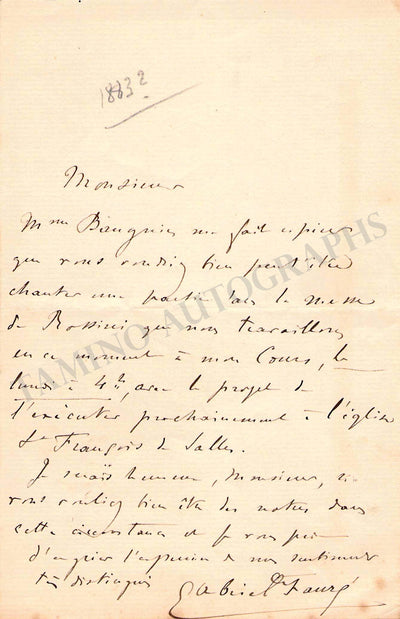 1883?
Monsieur
Mme Baugnies me fait espérer
que vous voudriez bien peut-être
chanter une partie dans la messe
de Rossini que nous travaillons
en ce moment à mon Cours, le
lundi à 4h, avec le projet de
l'exécuter prochainement à l'église
St François de Salles.
Je serais heureux, Monsieur, si
vous vouliez bien être des nôtres dans
cette circonstance et je vous prie
d'agréer l'expression de mes sentiments
très distingués
Gabriel Fauré
TAMINO AUTOGRAPHS